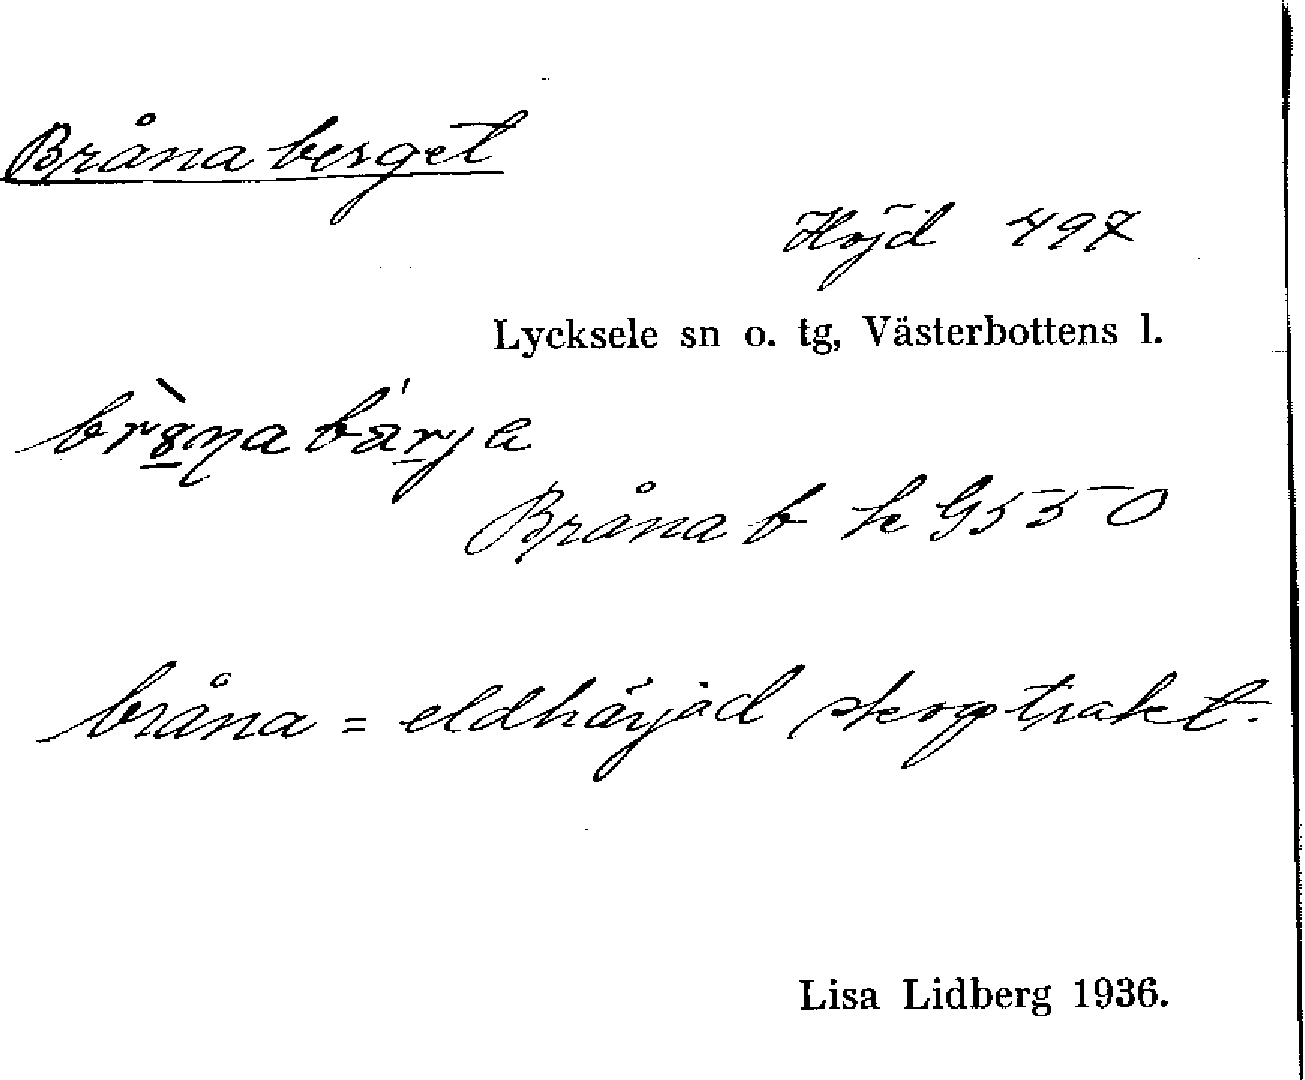 Bråna berget
Höjd 497
Lycksele sn o. tg, Västerbottens l.
Bråna b k G550
bråna = eldhärjad skogstrakt.
Lisa Lidberg 1936.